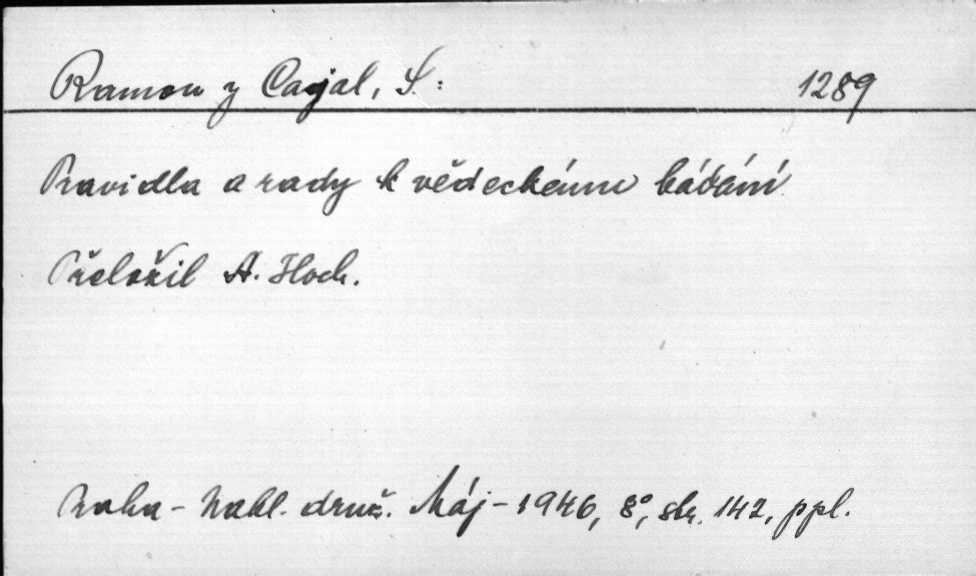 Ramon y Cajal, S.: 1289
Pravidla a rady k vědeckému bádání
Přeložil A. Hoch.
Praha - Nakl. druž. Máj - 1946, 8°, str. 142, ppl.